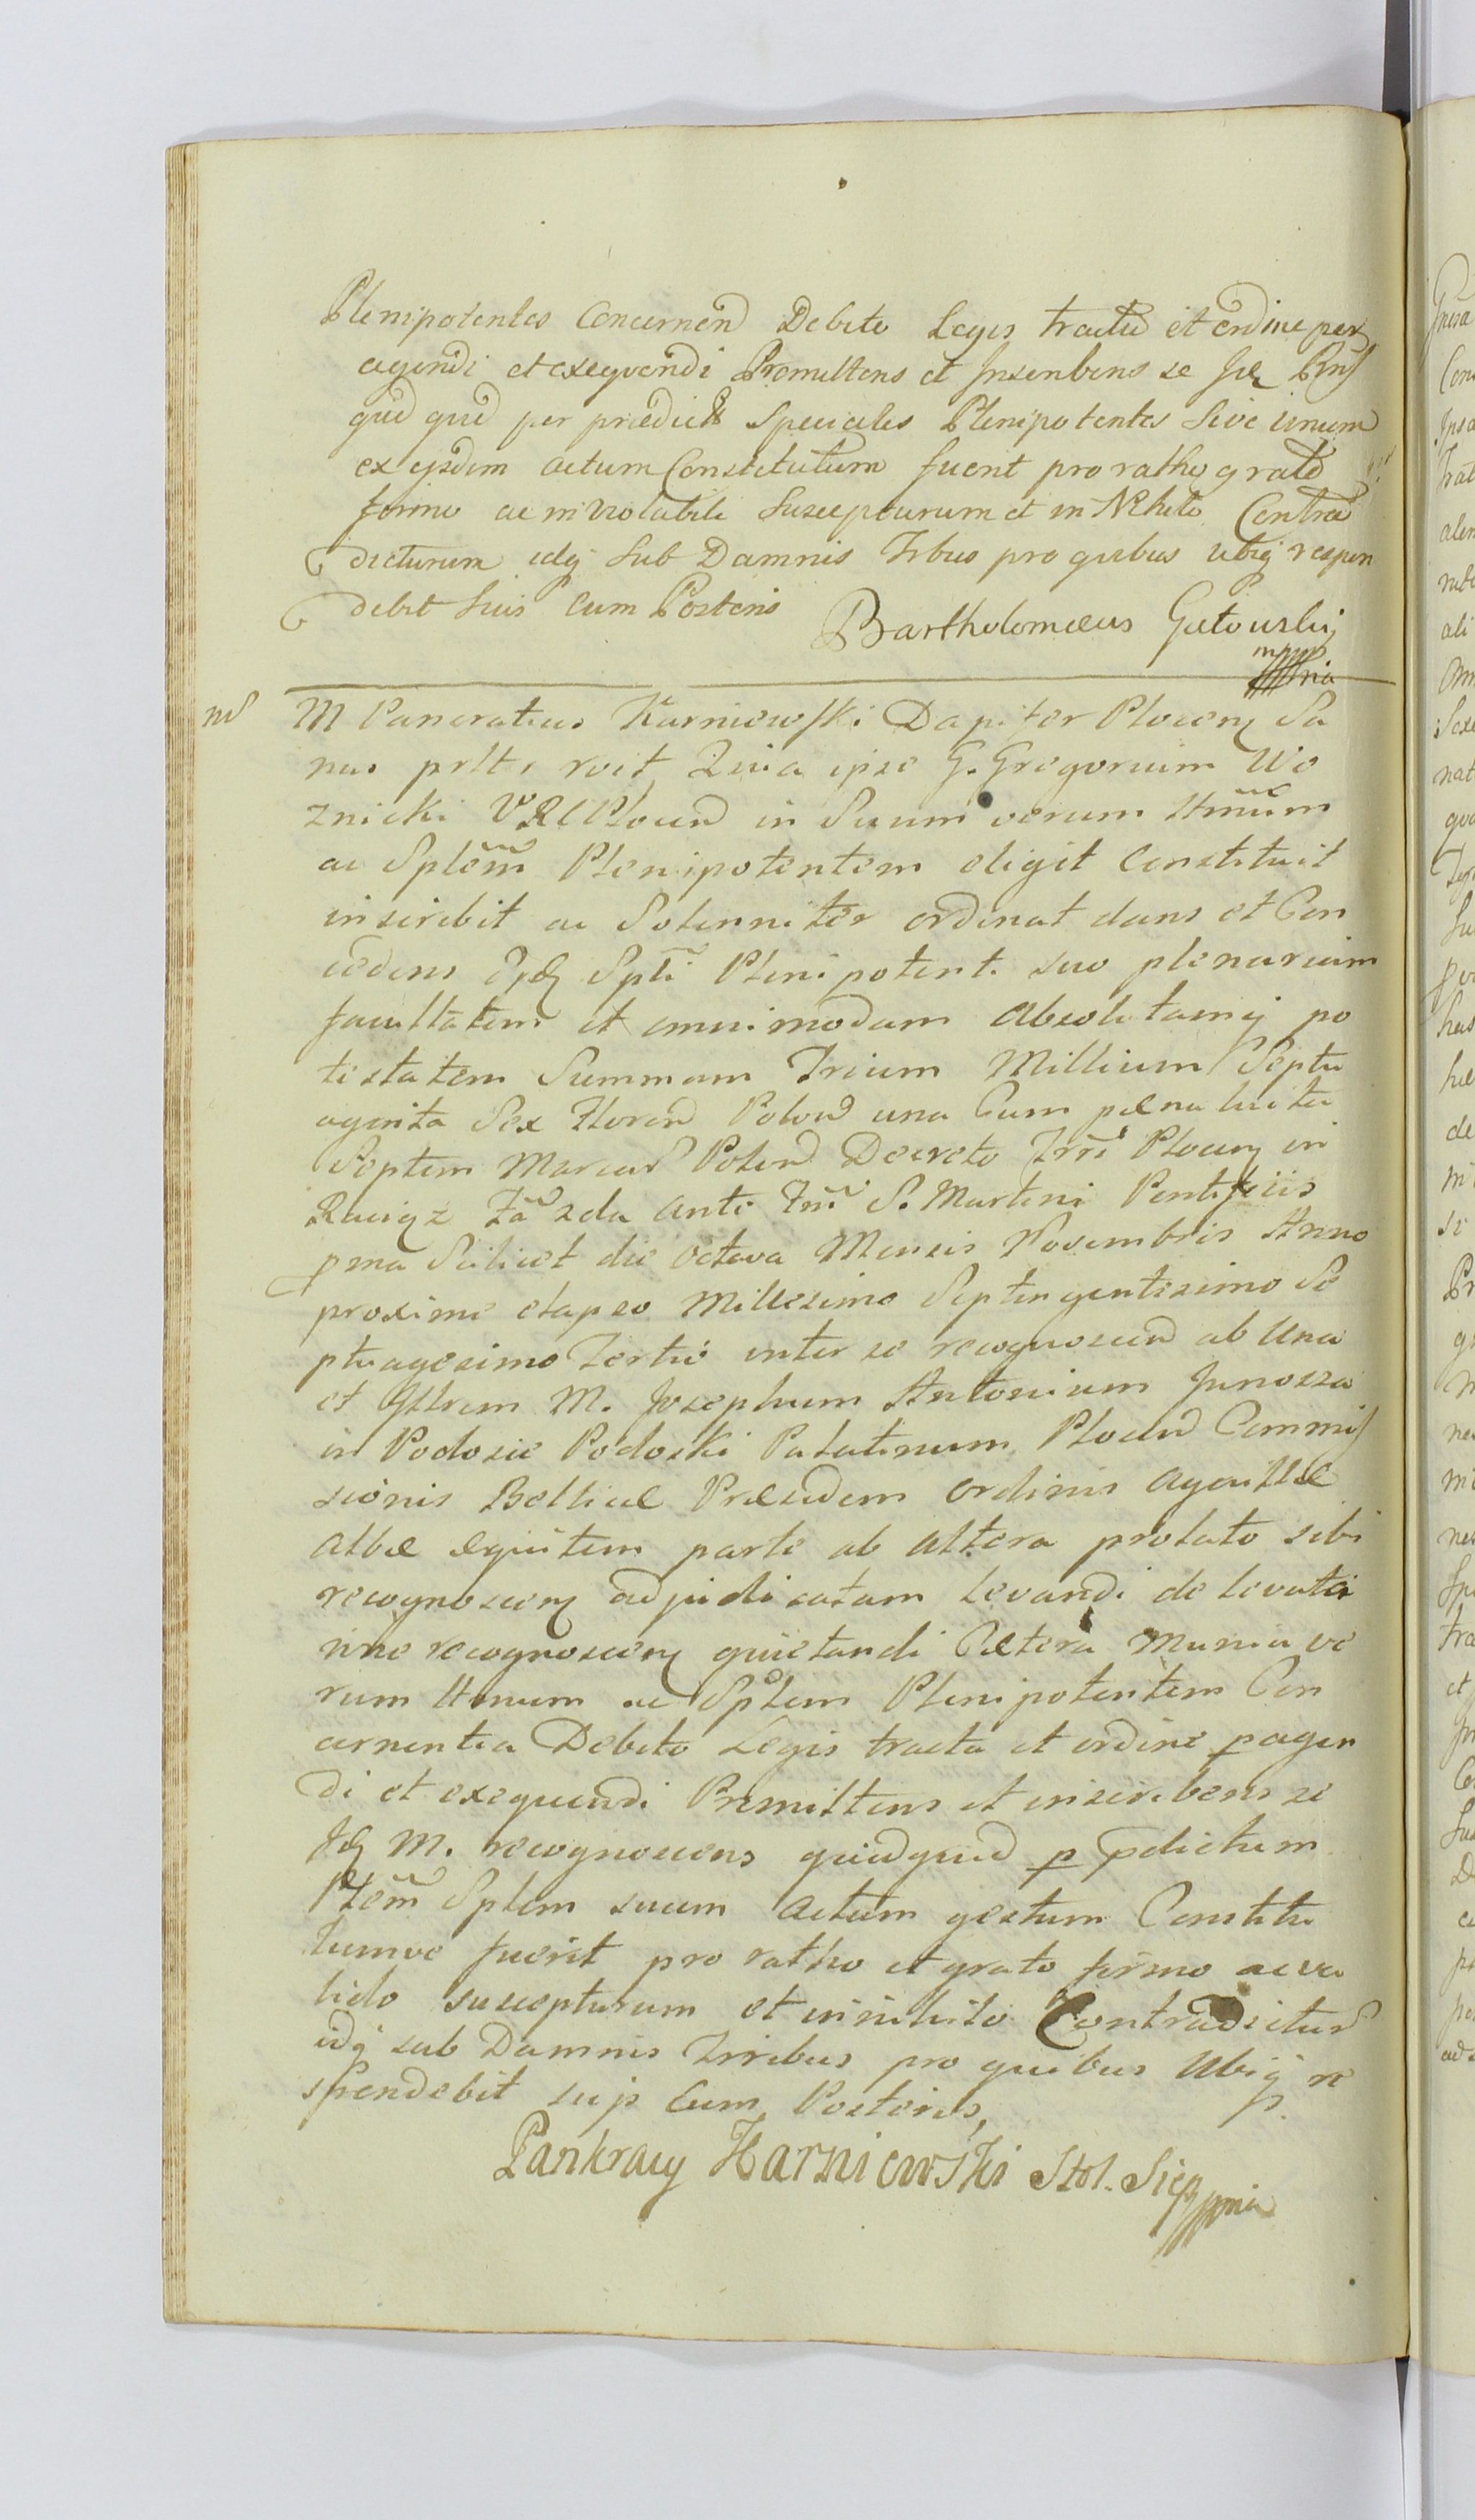 Plenipotentes Concernend Debito Legis tractu et ordine per
agendi et exeqvendi Promittens et Inscribens se
quid quid per praedictos Speciales Plenipotentes Sive unum
ex ejsdem actum Constitutum fuerit pro ratho grato
firmo ac inviolabili Suscepturum et in Nihilo Contra
dicturum idq Sub Damnis Trbus pro quibus ubiq respon
debit Suis Cum Posteris
Bartholomæus Gutowskij
mppria
M Pancratius Karniewski Dapifer Plocen Sa
nus prlt, roit Quia ipse G. Gregorium Wo
znicki V R C Plocen in Suum verum Ittimum
ac Splem Plenipotentem eligit Constituit
inscribit ac Solenniter ordinat dans et Con
cedens Spli Plenipotenti suo plenariam
facultatem et omnimodam Absolutamq po
testatem Summam Trium Millium Septu
aginta Sex Floren Polon una Cum pæna luita
Septem Marcar Polon Decreto Trri Plocen in
Raciąz Fa 2da ante Fm S. Martini Pontificis
pma Scilicet die Octava Mensis Novembris Anno
proxime elapso Millesimo Septingentesimo Se
ptuagesimo Tertio inter se recognoscen ab Una
et Illrem M. Josephum Antonium Junosza
in Podosie Podoski Palatinum Plocen Commis
sionis Bellicæ Præsidem Ordinis Aquillæ
Albæ Equitem parte ab Altera prolato sibi
recognoscen adjudicatam Levandi de levata
vine recognoscen quietandi Cætera Munia ve
rum Ittimum ac Splem Plenipotentem Con
cernentia Debito Legis tractu et ordine pagen
di et exequendi Promittens et inscribens se
Idq M. recognoscens quidquid p pdictum
Pltem Splem suum Actum gestum Constitu
tumve fuerit pro ratho et grato firmo ac va
lido suscepturum et in nihilo Contradictur
idq sub Damnis Trribus pro quibus Ubiq re
spondebit suis Cum Posteris,
Pankracy Karniewski Stol. Sie mppria